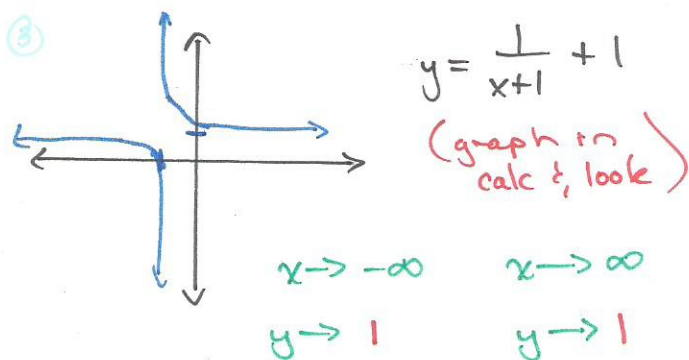 ③
y = 1/(x+1) + 1
(graph in
calc & look)
x → -∞ x → ∞
y → 1 y → 1